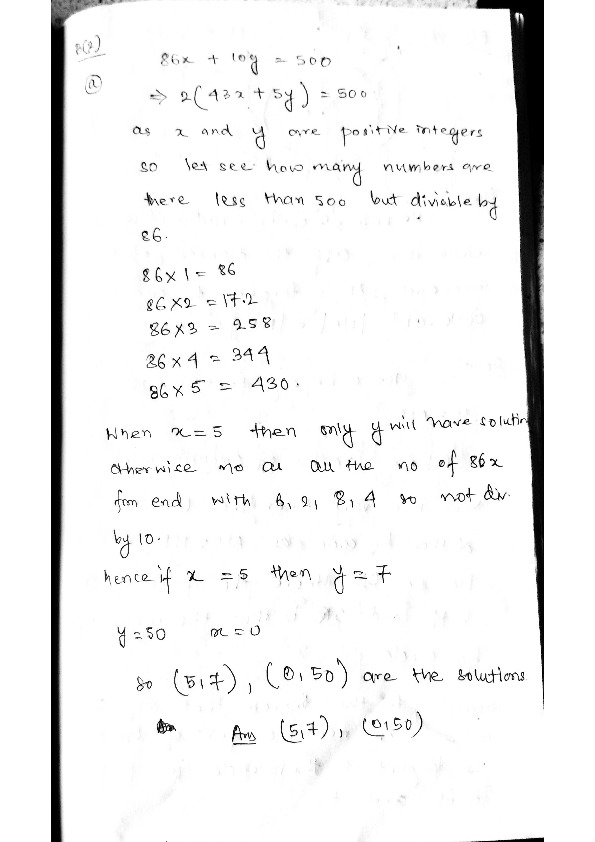 (a)
86x + 10y = 500
⇒ 2(43x + 5y) = 500
as x and y are positive integers
so let see how many numbers are
there less than 500 but divisible by
86.
86 × 1 = 86
86 × 2 = 172
86 × 3 = 258
86 × 4 = 344
86 × 5 = 430.
When x = 5 then only y will have solution
otherwise no as all the no of 86x
end with 6, 2, 8, 4 so not div.
by 10.
hence if x = 5 then y = 7
y = 50 x = 0
so (5,7), (0,50) are the solutions
Ans (5,7), (0,50)